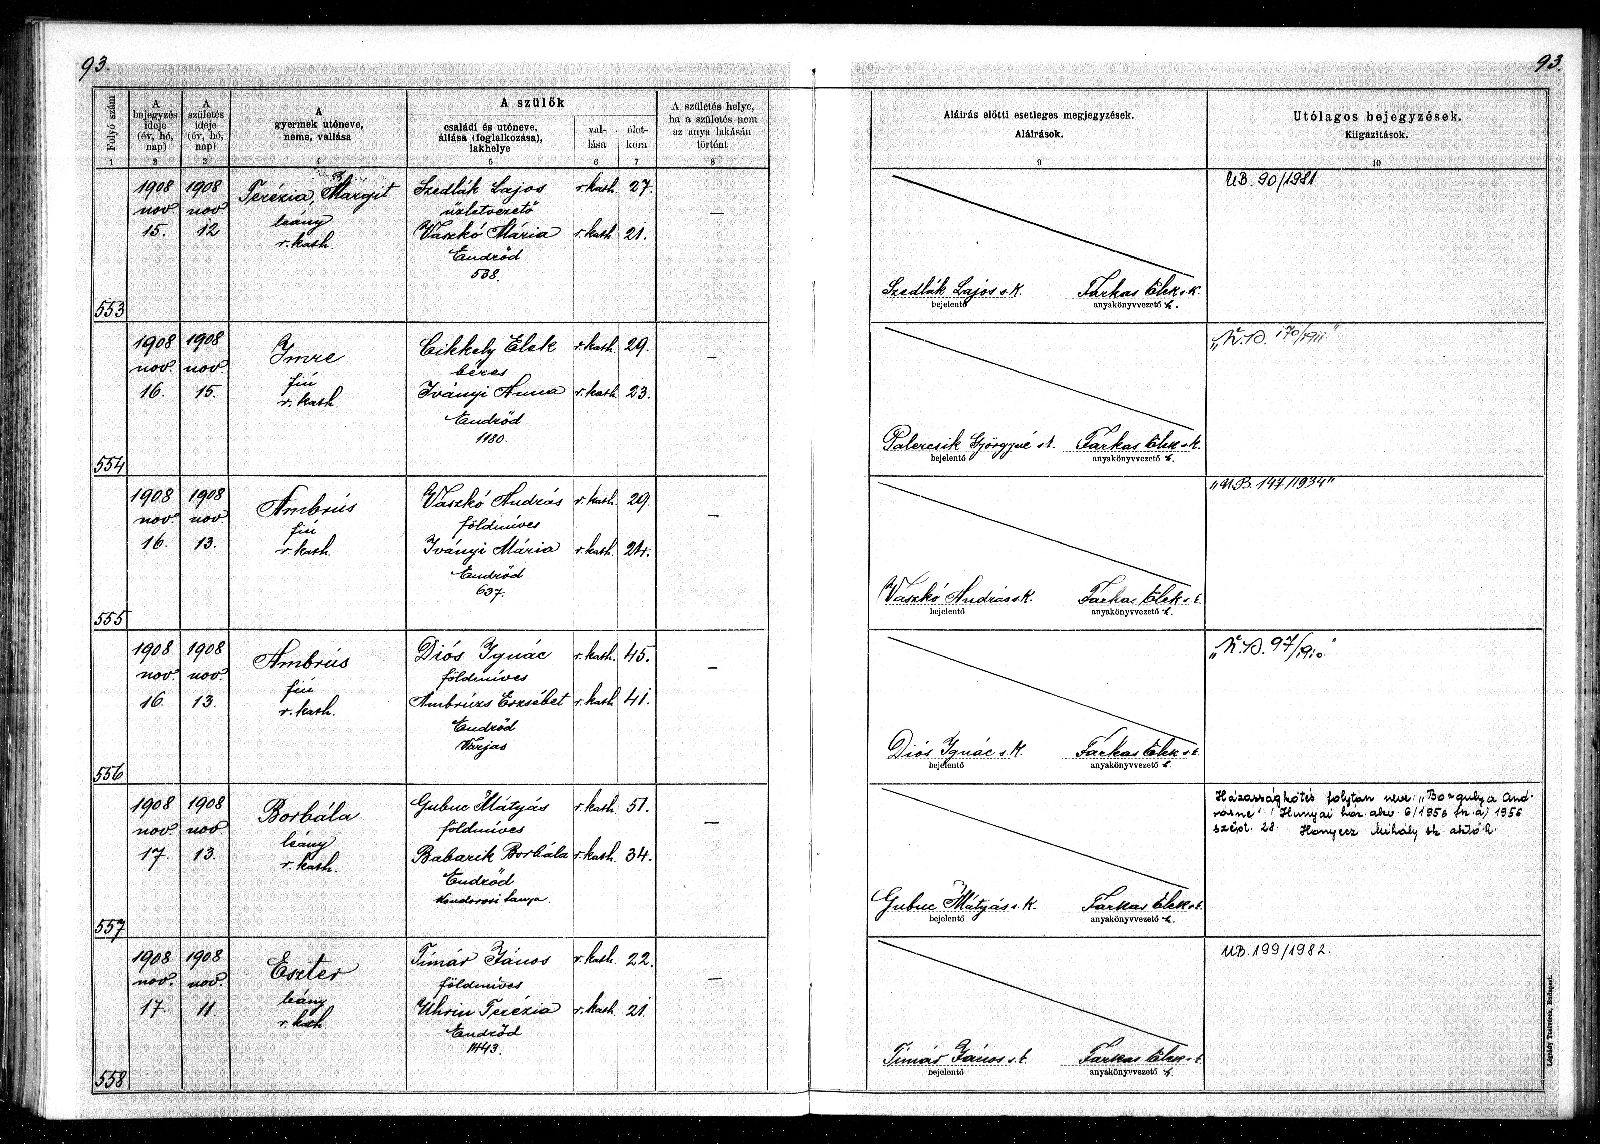 93.
93.
Folyó szám
A bejegyzés ideje (év, hó, nap)
A születés ideje (év, hó, nap)
A gyermek utóneve, neme, vallása
A szülők
családi és utóneve, állása (foglalkozása), lakhelye
vallása
életkora
A születés helye, ha a születés nem az anya lakásán történt
Aláírás előtti esetleges megjegyzések.
Aláírások.
Utólagos bejegyzések.
Kiigazítások.
1 2 3 4 5 6 7 8 9 10
553
1908 nov. 15.
1908 nov 12
Terézia, Margit
leány
r. kath
Szedlák Lajos r. kath 27.
üzletvezető
Vaszkó Mária r. kath 21.
Endrőd
538.
—
Szedlák Lajos s. k. Farkas Elek s. k.
bejelentő anyakönyvvezető h.
UB. 90/1981
554
1908 nov. 16.
1908 nov 15.
Imre
fiú
r. kath.
Cikkely Elek r. kath. 29.
béres
Iványi Anna r. kath 23.
Endrőd
1180.
—
Palercsik Györgyné s. k. Farkas Elek s. k.
bejelentő anyakönyvvezető h.
170/1911"
555
1908 nov. 16.
1908 nov 13.
Ambrús
fiú
r. kath.
Vaszkó András r. kath. 29.
földmíves
Iványi Mária r. kath. 24.
Endrőd
637.
—
Vaszkó András s. k. Farkas Elek s. k.
bejelentő anyakönyvvezető h.
"UB. 147/1934"
556
1908 nov. 16.
1908 nov. 13.
Ambrús
fiú
r. kath.
Diós Ignác r. kath. 45.
földmíves
Ambrúzs Erzsébet r. kath. 41.
Endrőd
Varjas
—
Diós Ignác s. k. Farkas Elek s. k.
bejelentő anyakönyvvezető h.
97/1910"
557
1908 nov. 17.
1908 nov. 13.
Borbála
leány
r. kath.
Gubuc Mátyás r. kath. 51.
földmíves
Babarik Borbála r. kath. 34.
Endrőd
Kondorosi tanya.
—
Gubuc Mátyás s. k. Farkas Elek s. k.
bejelentő anyakönyvvezető h.
Házasságkötés folytán neve: "Bozgulya And-
rásné" Hunyai ház. akv. 6/1956 1956
szept. 28. Mihály
558
1908 nov. 17.
1908 nov. 11
Eszter
leány
r. kath
Tímár János r. kath. 22.
földmíves
Uhrin Terézia r. kath. 21.
Endrőd
1443.
—
Tímár János s. k. Farkas Elek s. k.
bejelentő anyakönyvvezető h.
UB. 199/1982.
Légrády Testvérek, Budapest.